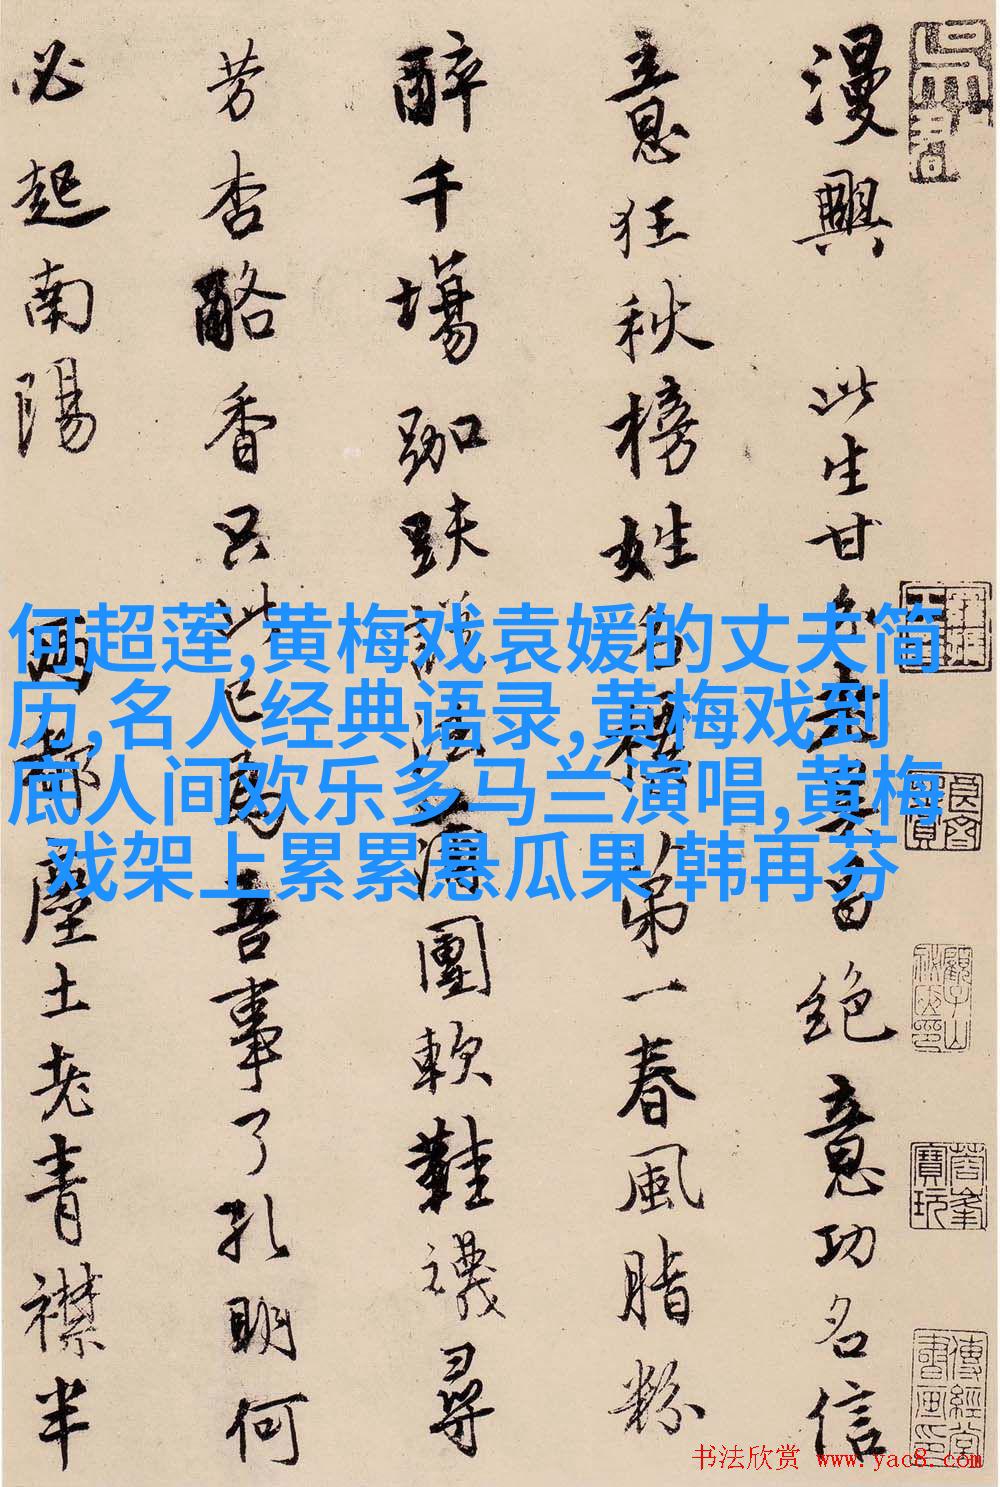 漫興 此生甘 昌絕意功名信
意狂秋榜姓名 第一春風脂粉
醉千場跏趺說法 團軟鞋襪尋
芳杏酪香只此已為吾事了孔明何
必起南陽 兩都塵土老青襟半
何超莲,黄梅戏袁媛的丈夫简
历,名人经典语录,黄梅戏到
底人间欢乐多马兰演唱,黄梅
戏架上累累悬瓜果 韩再芬
书法欣赏 www.yac8.com